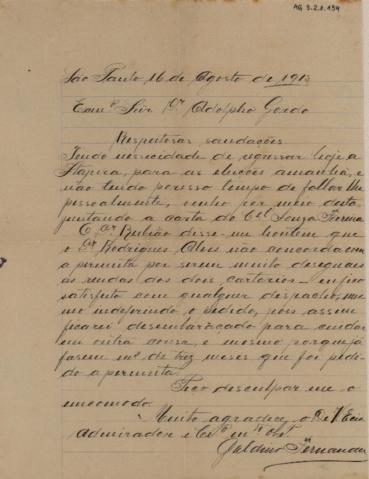 AG 3.2.8.139
São Paulo 16 de Agosto de 1913
Exmº Snr Dr Adolpho Gordo
Respeitosas saudações
Tendo necicidade de regressar hoje a
Itapira, para as eleições amanhã, e
não tendo por esso tempo de fallar lhe
pessoalmente, venho por meio desta
juntando a carta do Cel Souza Ferreira
O Dr Rubião disse-me hontem que
o Dr Rodrigues Alves não concorda com
a permuta por serem muito desiguaes
as rendas dos dois cartorios — enfico
satisfeito com qualquer despacho, mes
mo indeferindo o pedido, pois assim
ficarei desembaraçado para cuidar
em outra cousa, e mesmo porque já
fasem mº de trez meses que foi pedi
do a permuta.
Peço desculpar-me o
encomodo.
Muito agradeço, o De V. Exa
Admirador e Crº mto Obrº
Galdino Fernandes